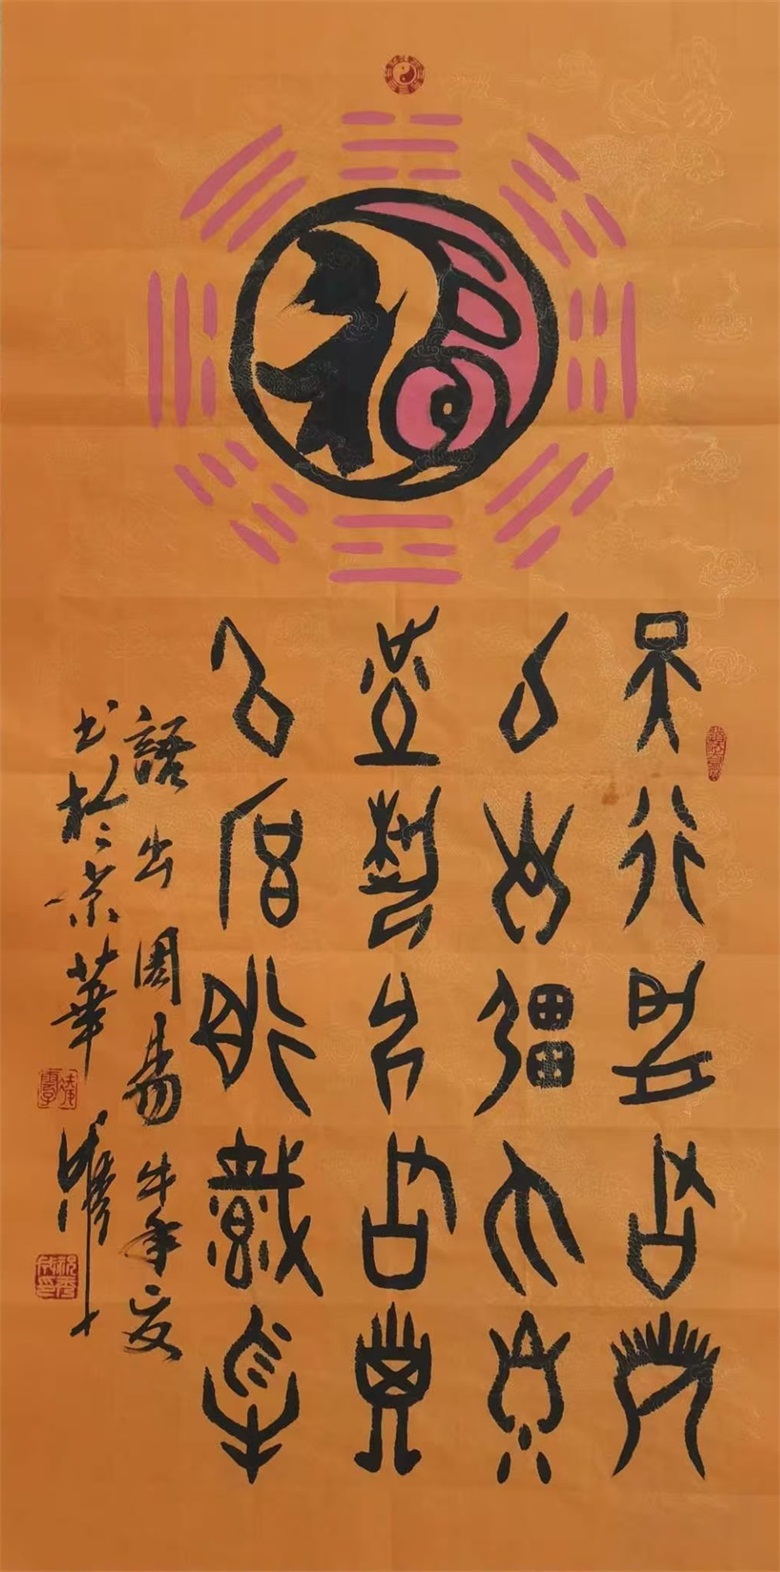 福
天行健君子
以自彊不息
地勢坤君子
以厚德載物
語出周易牛年夏
书於京華